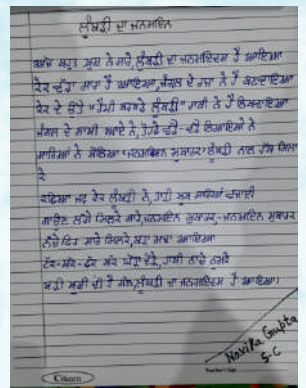 ਲੂੰਬੜੀ ਦਾ ਜਨਮਦਿਨ
ਅੱਜ ਬਹੁਤ ਖੁਸ਼ ਨੇ ਸਾਰੇ, ਲੂੰਬੜੀ ਦਾ ਜਨਮਦਿਨ ਹੈ ਆਇਆ
ਕੇਕ ਵੱਡਾ ਸਾਰਾ ਹੈ ਆਇਆ, ਜੰਗਲ ਦੇ ਰਾਜਾ ਨੇ ਹੈ
ਕੇਕ ਦੇ ਉੱਤੇ "ਹੈਪੀ ਬਰਥਡੇ ਲੂੰਬੜੀ" ਹਾਥੀ ਨੇ ਹੈ ਲਿਖਵਾਇਆ
ਜੰਗਲ ਦੇ ਸਾਥੀ ਆਏ ਨੇ, ਤੋਹਫ਼ੇ ਵੱਡੇ-ਵੱਡੇ ਲਿਆਏ ਨੇ
ਸਾਰਿਆਂ ਨੇ ਬੋਲਿਆ "ਜਨਮਦਿਨ ਮੁਬਾਰਕ" ਲੂੰਬੜੀ ਨਾਲ ਹੱਥ ਮਿਲਾ
ਕੇ
ਕੱਟਿਆ ਜਦ ਕੇਕ ਲੂੰਬੜੀ ਨੇ, ਤਾੜੀ ਖੂਬ ਸਾਰਿਆਂ ਵਜਾਈ
ਗਾਉਣ ਲੱਗੇ ਮਿਲਕੇ ਸਾਰੇ, ਜਨਮਦਿਨ ਮੁਬਾਰਕ-ਜਨਮਦਿਨ ਮੁਬਾਰਕ
ਨੱਚੇ ਫਿਰ ਸਾਰੇ ਮਿਲਕੇ, ਬੜਾ ਮਜ਼ਾ ਆਇਆ
ਹਾਥੀ ਨਾਚੇ ਠੁਮਕੇ
ਬੜੀ ਖੁਸ਼ੀ ਦੀ ਹੈ ਗੱਲ, ਲੂੰਬੜੀ ਦਾ ਜਨਮਦਿਨ ਹੈ ਆਇਆ।
Navika Gupta
5-C
Teacher's Sign